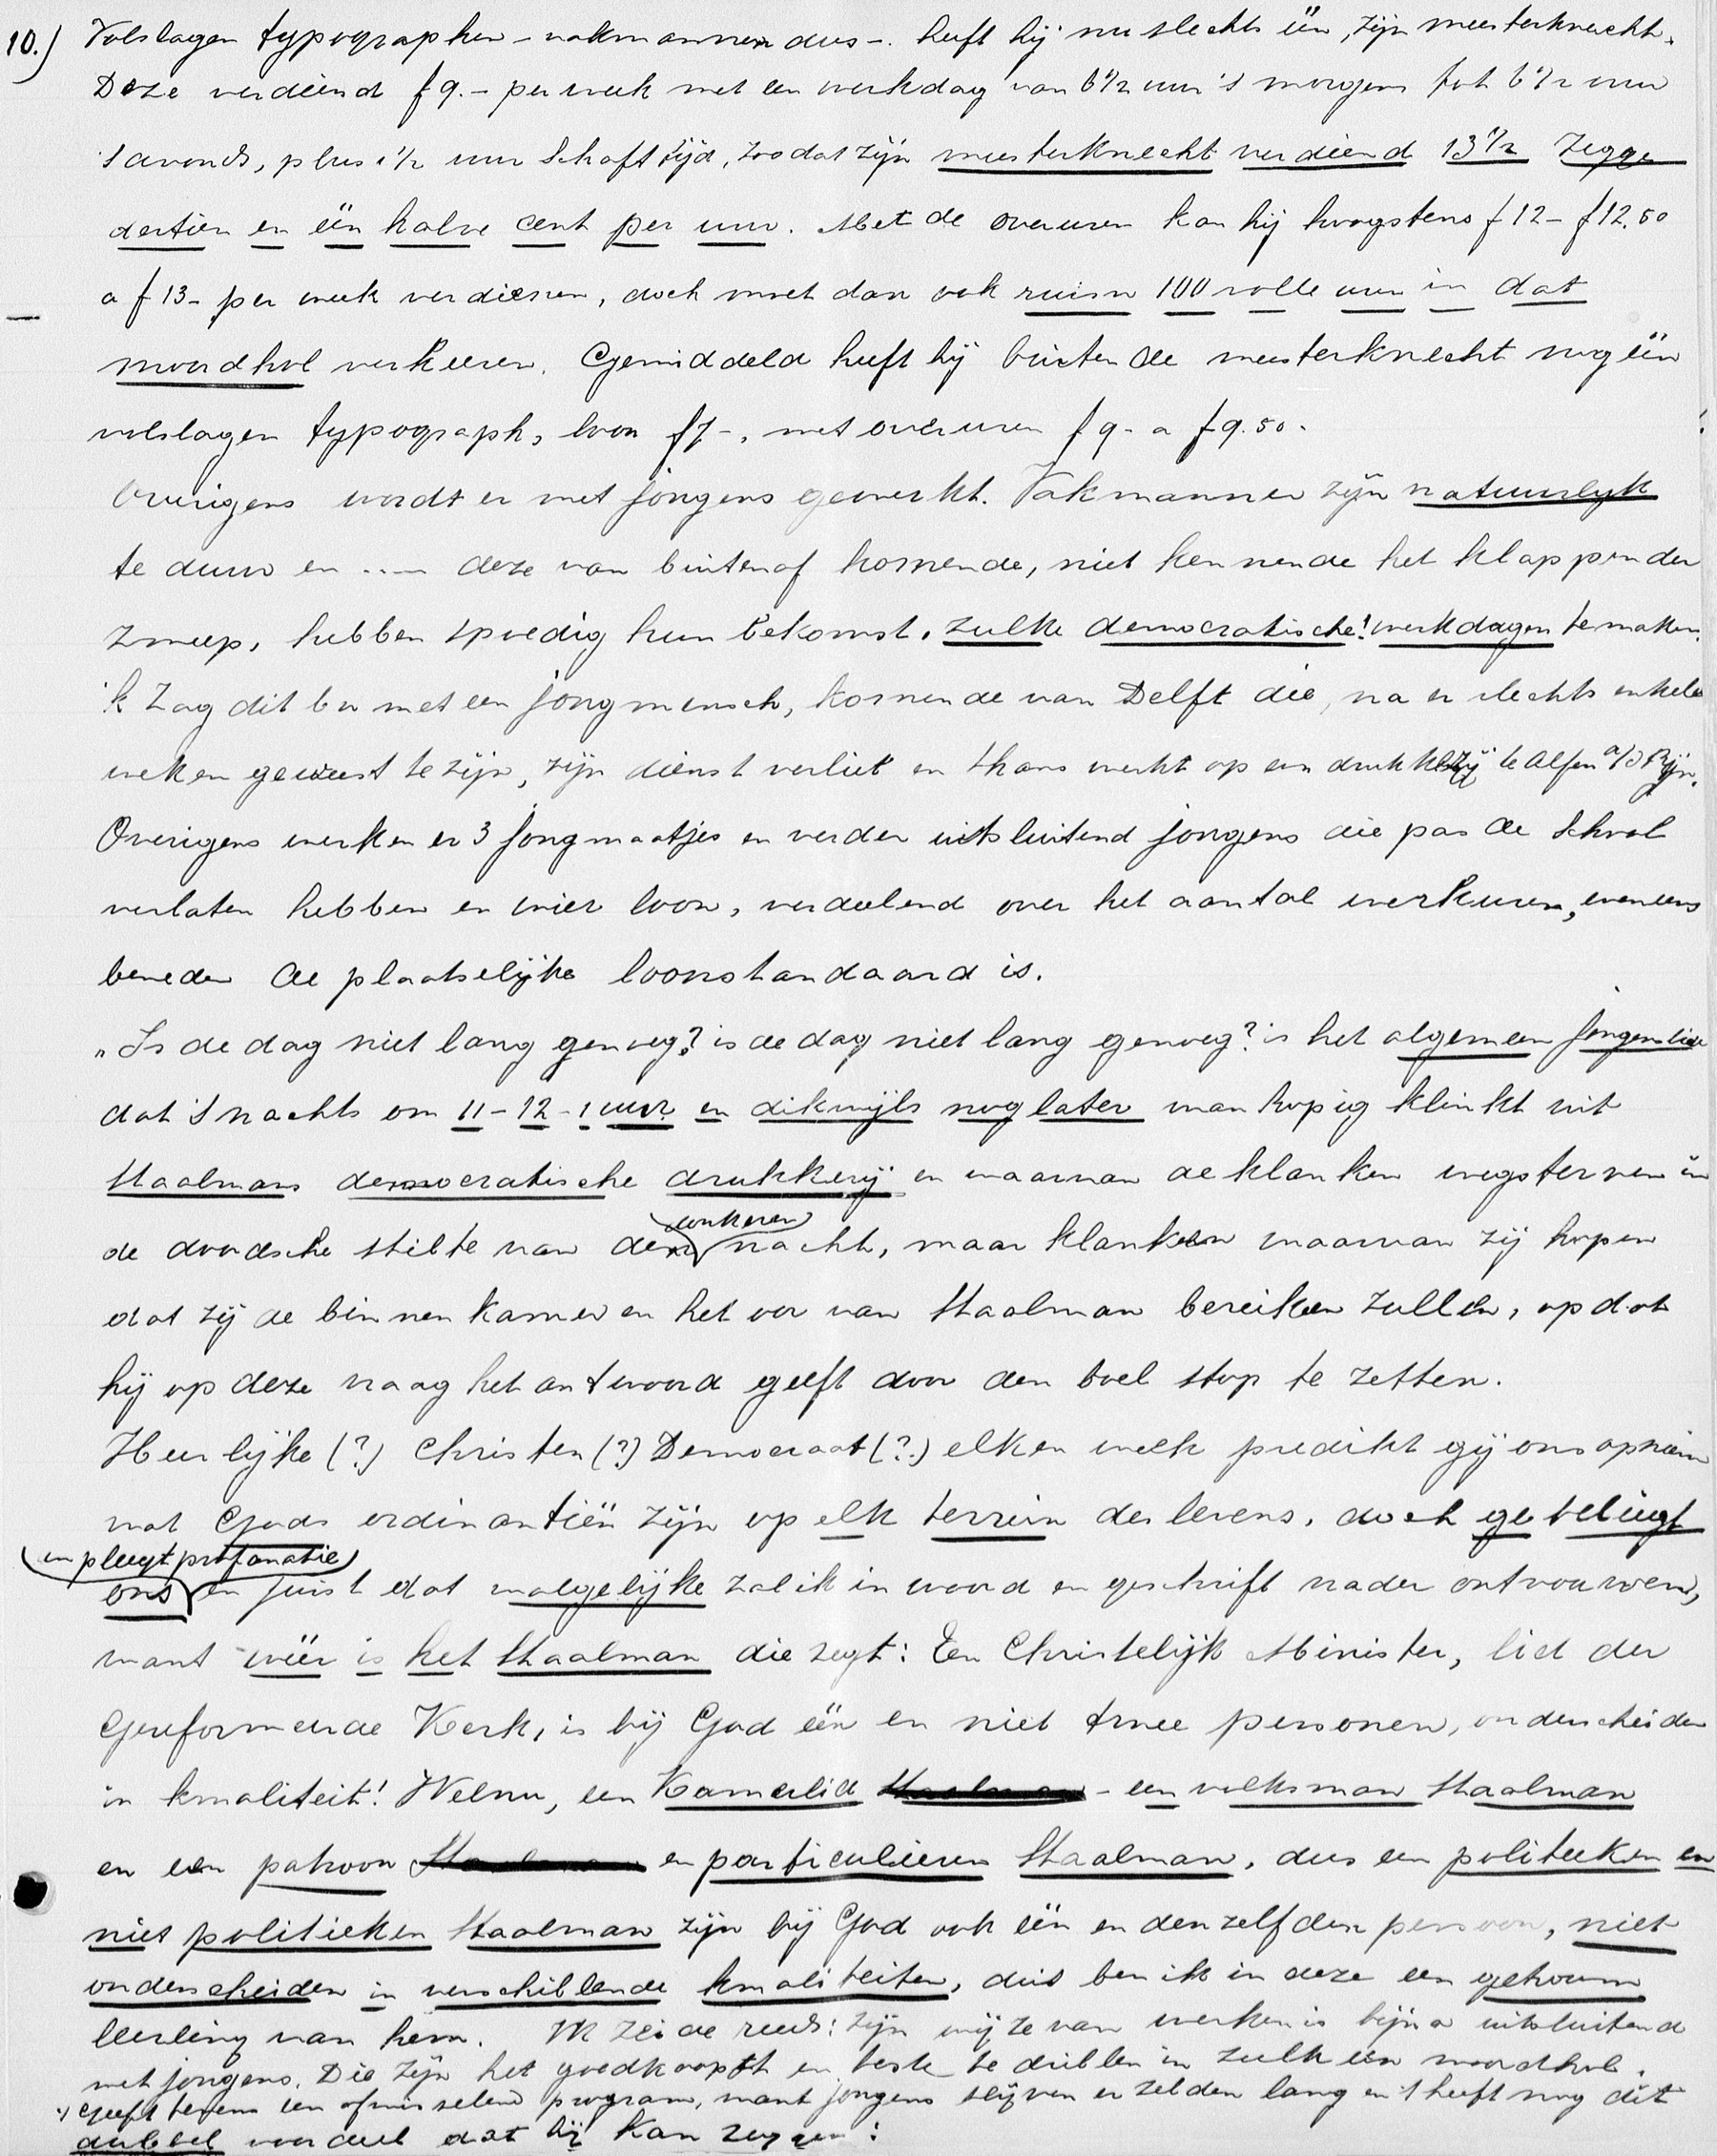 10.) Volslagen typographen - vakmannen dus -. heeft hij nu slechts één, zijn meesterknecht.
Deze verdiend f 9.- per week met een werkdag van 6 1/2 uur 's morgens tot 6 1/2 uur
's avonds, plus 1 1/2 uur schafttijd, zoodat zijn meesterknecht verdiend 13 1/2 zegge
dertien en één halve cent per uur. Met de overuren kan hij hoogstens f 12 - f 12.50
a f 13 - per week verdienen, doch moet dan ook ruim 100 volle uur in dat
moordhol verkeeren. Gemiddeld heeft hij buiten de meesterknecht nog één
volslagen typograph, loon f 7-, met overuren f 9- a f 9.50.
Overigens wordt er met jongens gewerkt. Vakmannen zijn natuurlijk
te duur en .... deze van buitenaf komende, niet kennende het klappen der
zweep, hebben spoedig hun bekomst, zulke democratische! werkdagen te maken.
'k Zag dit bv met een jongmensch, komende van Delft die, na er slechts enkele
weken geweest te zijn, zijn dienst verliet en thans werkt op een drukkerij te Alfen a/d Rijn.
Overigens werken er 3 jongmaatjes en verder uitsluitend jongens die pas de school
verlaten hebben en wier loon, verdeelend over het aantal werkuren, eveneens
beneden de plaatselijke loonstandaard is.
"Is de dag niet lang genoeg? is de dag niet lang genoeg? is het algemeen jongenslied
dat 's nachts om 11 - 12 - 1 uur en dikwijls nog later wanhopig klinkt uit
Staalmans democratische drukkerij en waarvan de klanken wegsterven in
de doodsche stilte van den donkeren nacht, maar klanken waarvan zij hopen
dat zij de binnenkamer en het oor van Staalman bereiken zullen, opdat
hij op deze vraag het antwoord geeft door den boel stop te zetten.
Heerlijke (?) Christen (?) Democraat (?.) elken week predikt gij ons opnieuw
wat Gods ordinantiën zijn op elk terrein des levens, doch ge beliegt
ons en pleegt profanatie en juist dat walgelijke zal ik in woord en geschrift nader ontvouwen,
want wiér is het Staalman die zegt: Een Christelijk Minister, lid der
Gereformeerde Kerk, is bij God één en niet twee personen, onderscheiden
in kwaliteit! Welnu, een Kamerlid - een volksman Staalman
en een patroon en particulieren Staalman, dus een politieken en
niet politieken Staalman zijn bij God ook één en denzelfden persoon, niet
onderscheiden in verschillende kwaliteiten, dus ben ik in deze een getrouw
leerling van hem. Ik zeide reeds: zijn wijze van werken is bijna uitsluitend
met jongens. Die zijn het goedkoopst en beste te drillen in zulk een moordhol.
Geeft tevens een afwisselend program, want jongens blijven er zelden lang en 't heeft nog dit
dubbel voordeel dat hij kan zeggen: